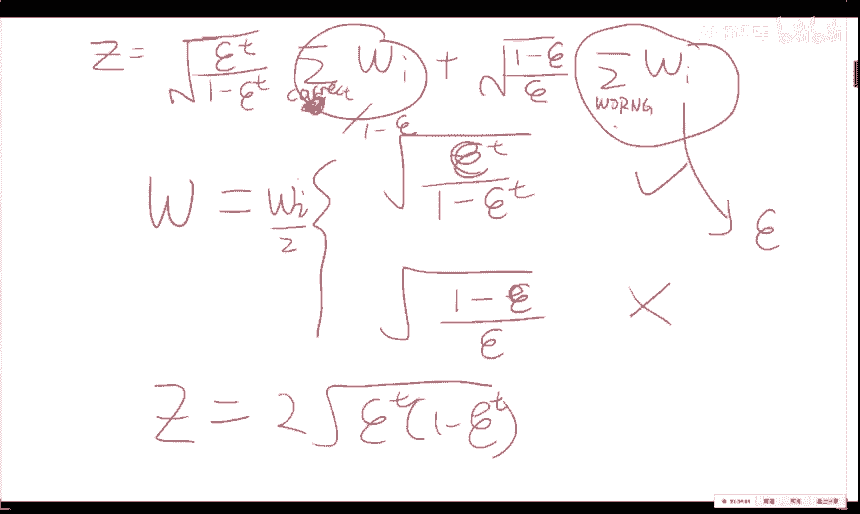 Z = √(ε^t / 1-ε^t) Σ_correct W_i + √(1-ε / ε) Σ_WORNG W_i
/ 1-ε
W = W_i/2 { √(ε^t / 1-ε^t) ✓ ε
√(1-ε / ε) ×
Z = 2√(ε^t(1-ε^t))